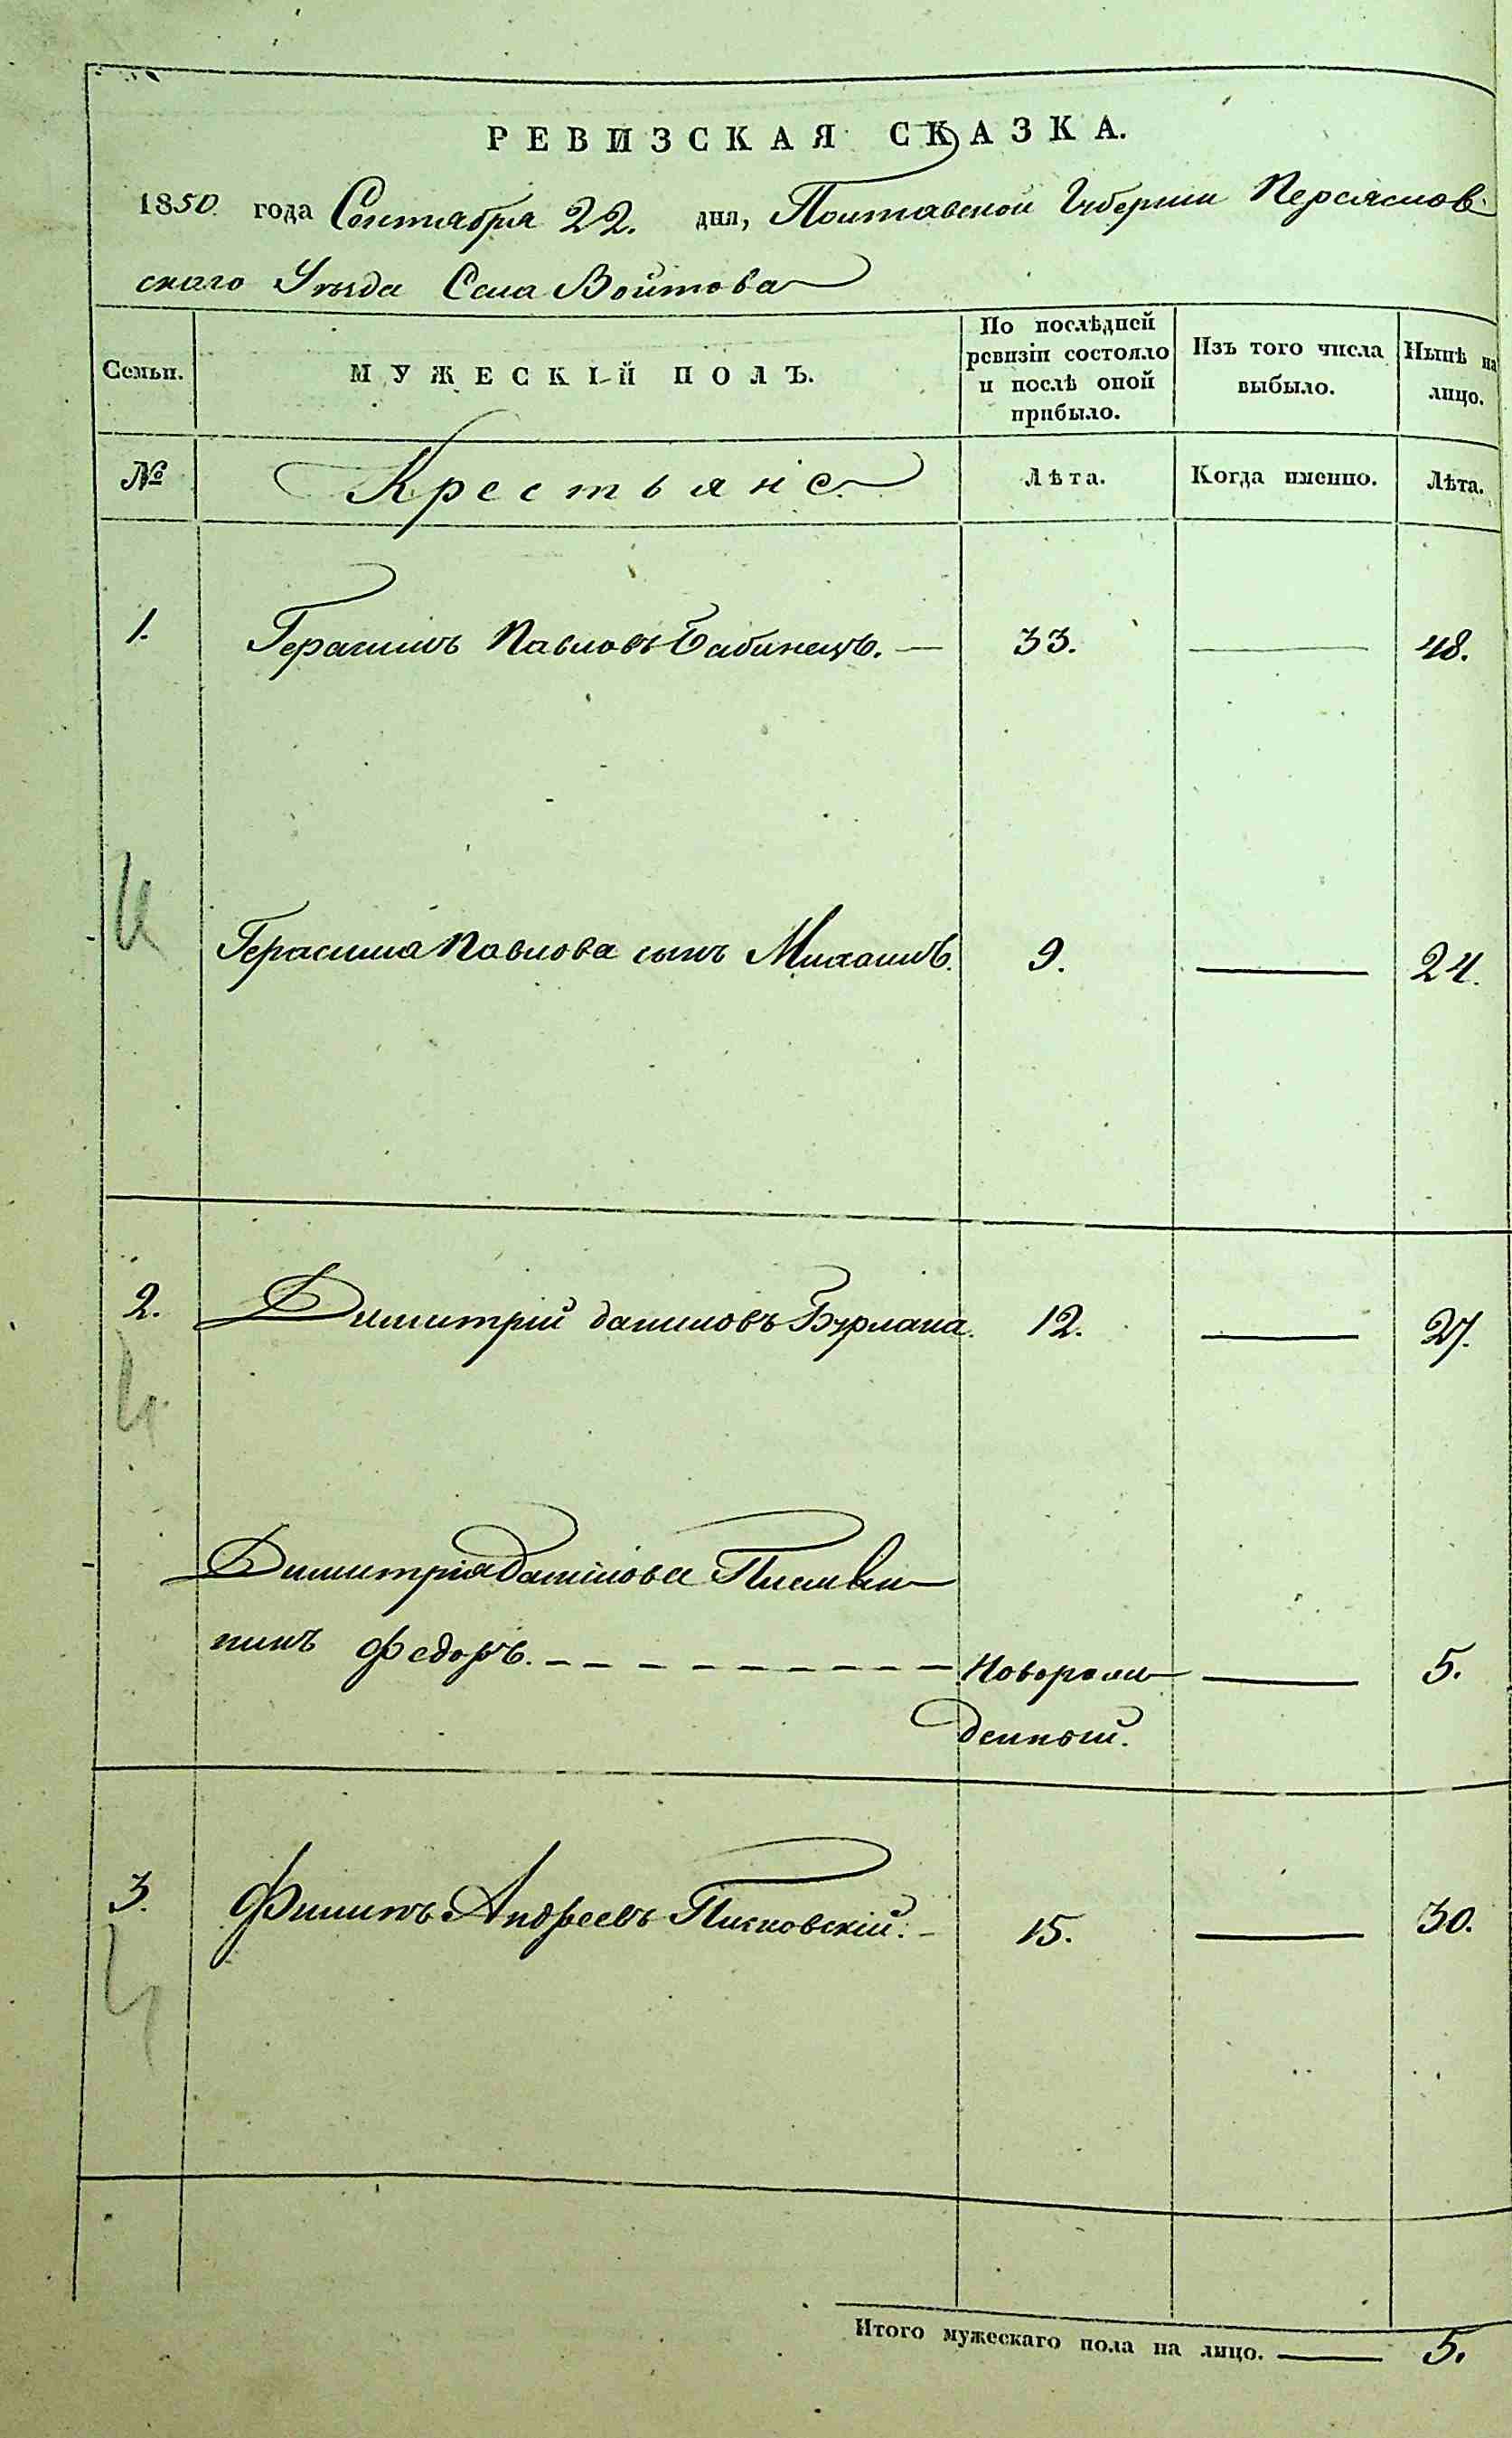 РЕВИЗСКАЯ СКАЗКА.
1850. года Сентября 22. дня, Полтавской Губернии Переяслов
скаго Уѣзда Села Войтова
Семьи.
МУЖЕСКІЙ ПОЛЪ.
По послѣдней
ревизіи состояло
и послѣ оной
прибыло.
Изъ того числа
выбыло.
Нынѣ на
лицо.
№
Крестьяне
Лѣта.
Когда именно.
Лѣта.
1. Герасимъ Павловъ Бабинецъ. — 33. — 48.
Герасима Павлова сынъ Михаилъ. 9. — 24.
2. Димитрій даниловъ Бурлака. 12. — 27.
Димитрія Данилова Племян
никъ Федоръ. — — — — — — — — — — Новорож — 5.
денный.
3. Филипъ Андреевъ Писковскій. — 15. — 30.
Итого мужескаго пола на лицо. — 5.